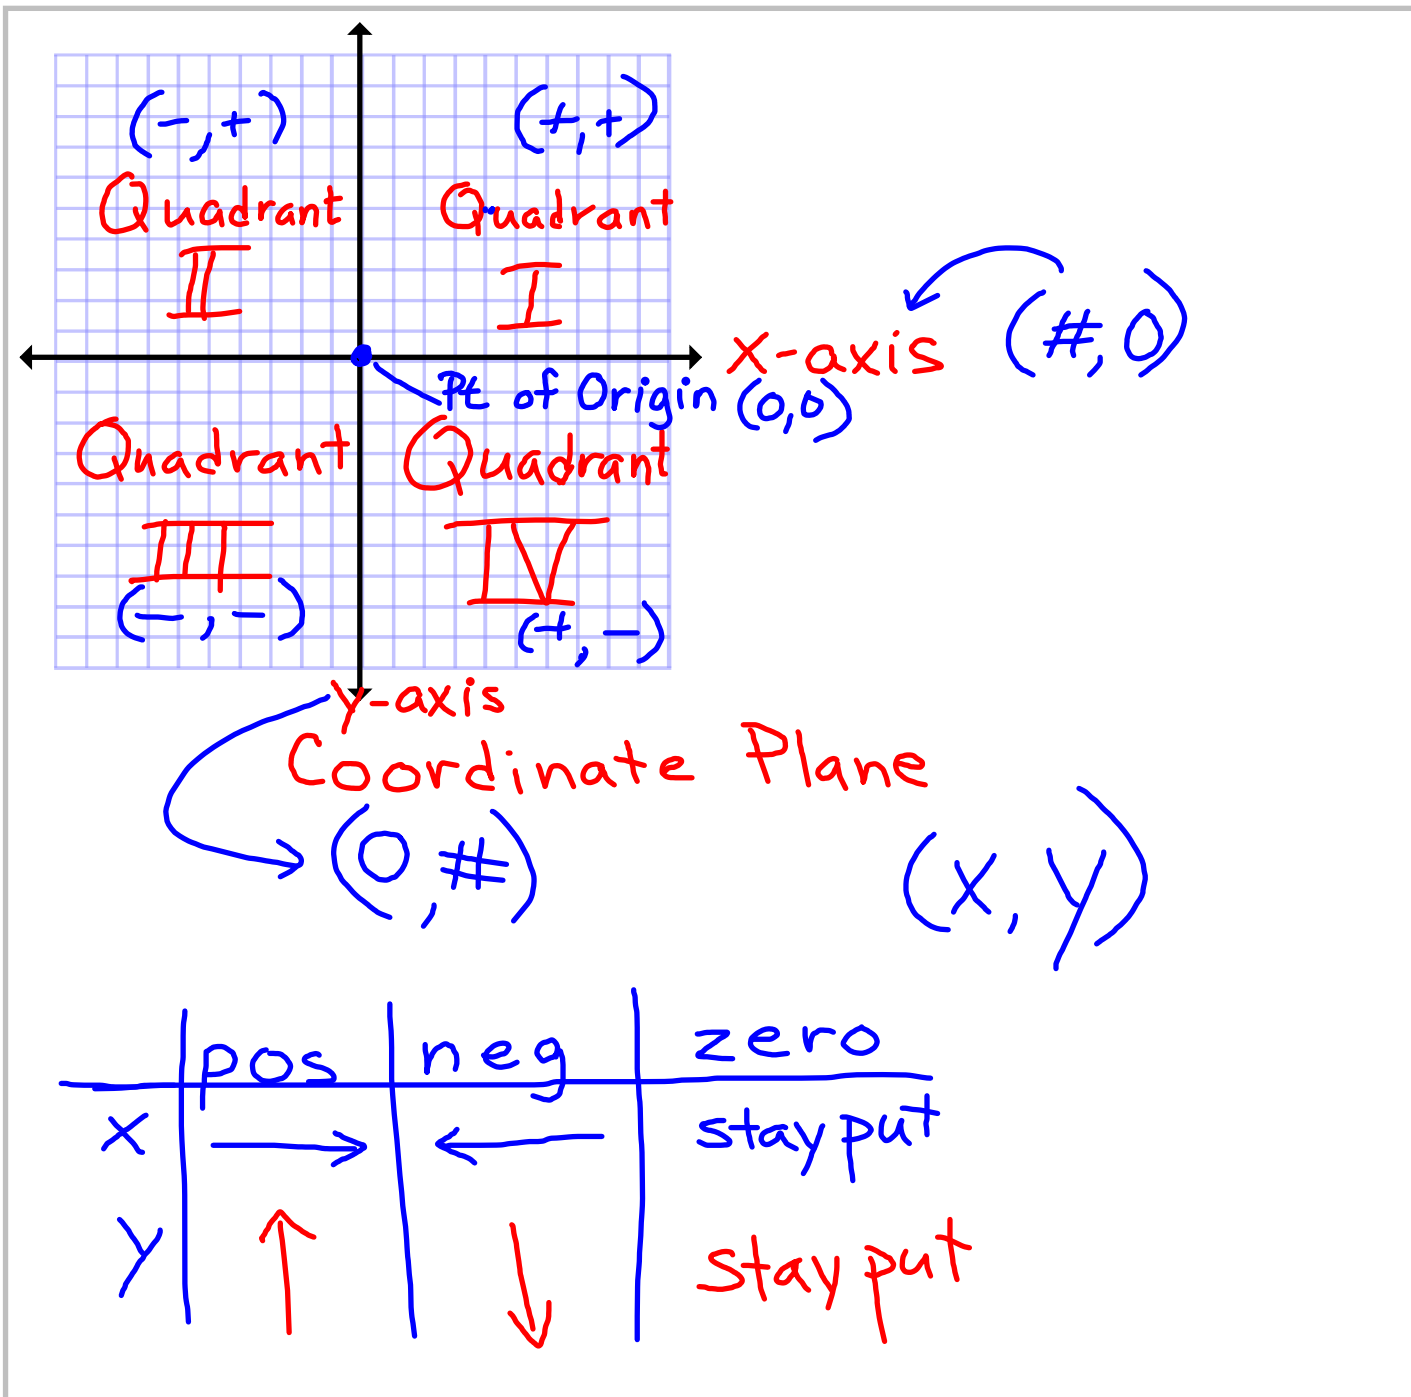 (-,+) (+,+)
Quadrant Quadrant
II I
x-axis (#,0)
Pt of Origin (0,0)
Quadrant Quadrant
III IV
(-,-) (+,-)
y-axis
Coordinate Plane
(0,#) (x,y)
pos neg zero
x → ← stay put
y ↑ ↓ stay put